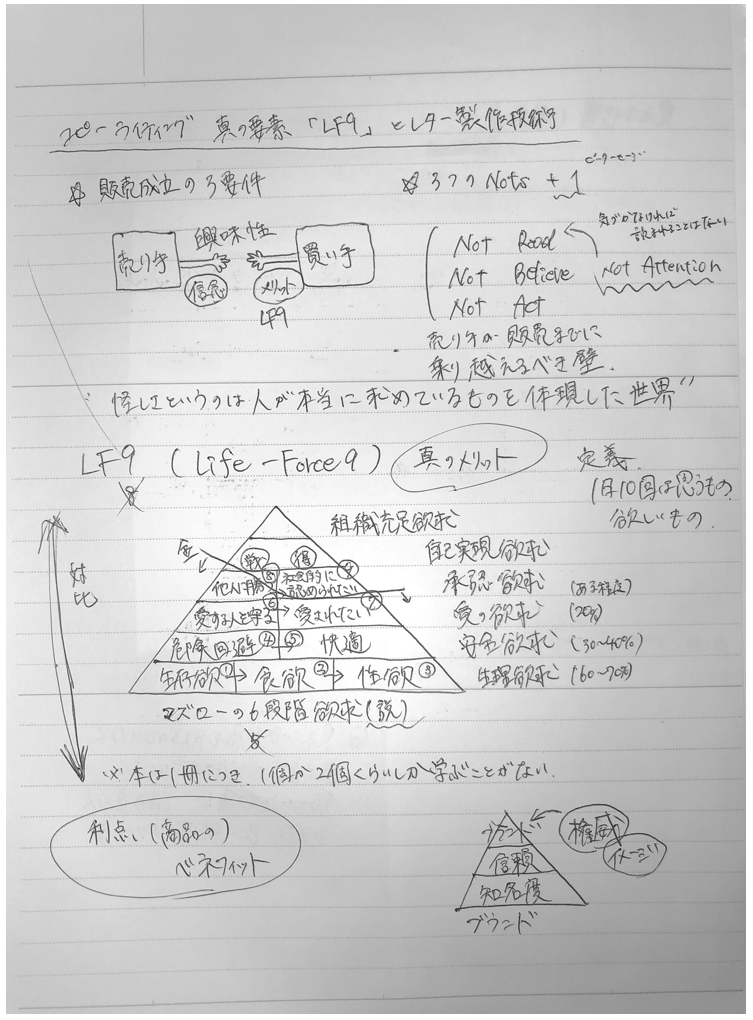 コピーライティング 真の要素「LF9」とレター製作技術
☆ 販売成立の3要件
売り手
興味性
買い手
信憑
メリット
LF9
☆ 3つのNots + 1
Not Read
Not Believe
Not Act
気づかなければ
読まれることはない
Not Attention
売り手が販売までに
乗り越えるべき壁.
"怪しいというのは人が本当に求めているものを体現した世界"
LF9 (Life-Force9)
8
真のメリット
定義
1日10回は思うもの
欲しいもの.
対比
組織充足欲求
自己実現欲求
戦 得
他人に勝 ⑧ 社会的に認められたい ⑨
承認欲求 (ある程度)
愛する人を守る ⑥ → 愛されたい ⑦
愛の欲求 (20%)
危険回避 ④ ⑤ 快適
安全欲求 (30~40%)
生存欲 ① → 食欲 ② → 性欲 ③
生理欲求 (60~70%)
マズローの6段階欲求(説)
5
※本は1冊につき、1個か2個くらいしか学ぶことがない.
利点、(商品の)
ベネフィット
ブランド
権威
イメージ
信頼
知名度
ブランド